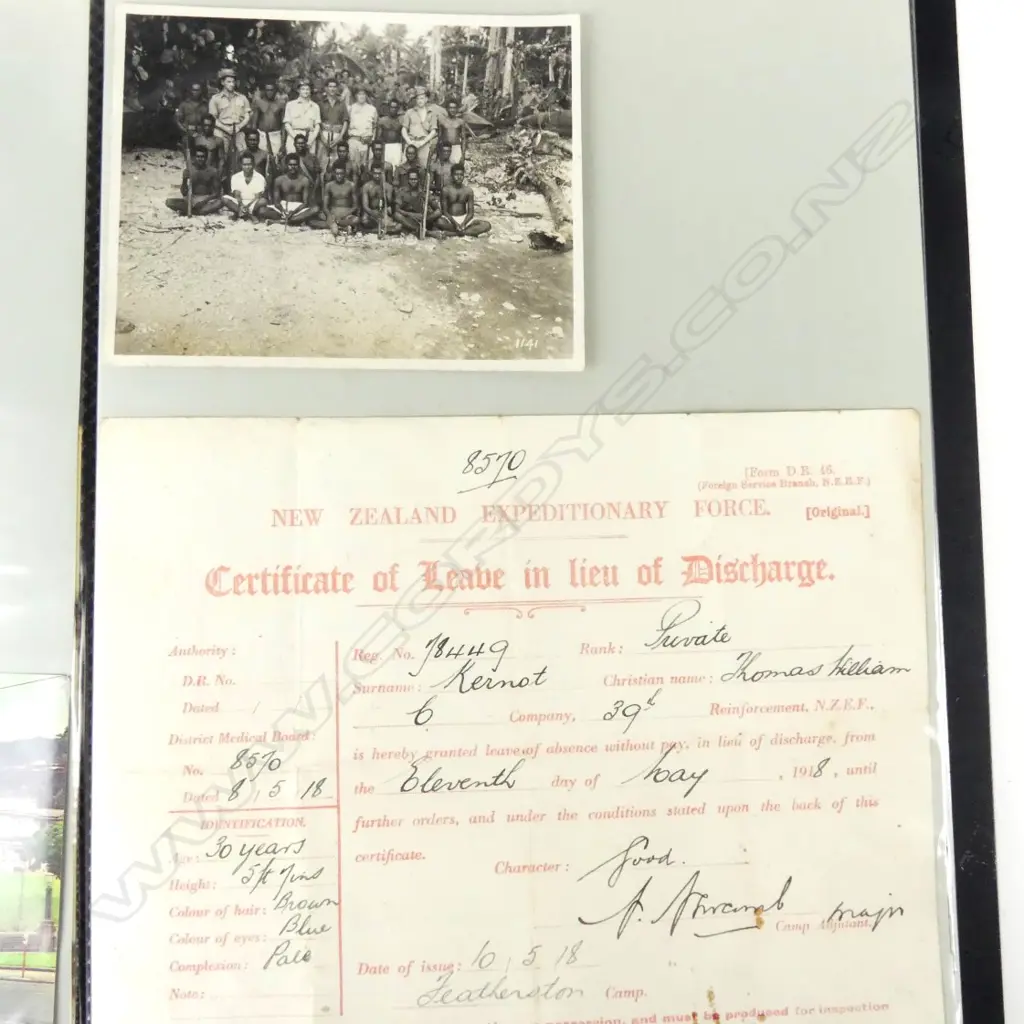 1141
8570
[Form D.R. 46.
(Foreign Service Branch, N.Z.E.F.)
NEW ZEALAND EXPEDITIONARY FORCE. [Original.]
Certificate of Leave in lieu of Discharge.
Authority:
D.R. No.
Dated /
District Medical Board:
No. 8570
Dated 8 , 5 , 18
IDENTIFICATION.
Age: 30 years
Height: 5ft 7ins
Colour of hair: Brown
Colour of eyes: Blue
Complexion: Pale
Note:
Reg. No. 78449 Rank: Private
Surname: Kernot Christian name: Thomas William
C Company, 39th Reinforcement, N.Z.E.F.,
is hereby granted leave of absence without pay, in lieu of discharge, from
the Eleventh day of May , 1918, until
further orders, and under the conditions stated upon the back of this
certificate.
Character: Good.
Major
Camp Adjutant.
Date of issue: 10 , 5 , 18
Featherston Camp.
possession, and must be produced for inspection
WWW.CORDYS.CO.NZ